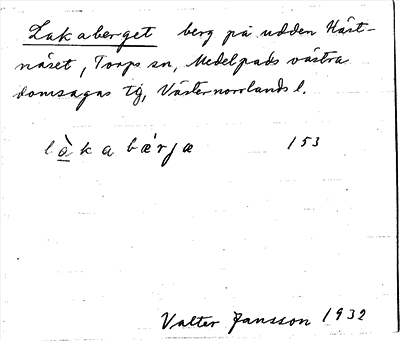 Lakaberget berg på udden Häst-
näset, Torps sn, Medelpads västra
domsagas tg, Västernorrlands l.
làkabærjæ 153
Valter Jansson 1932